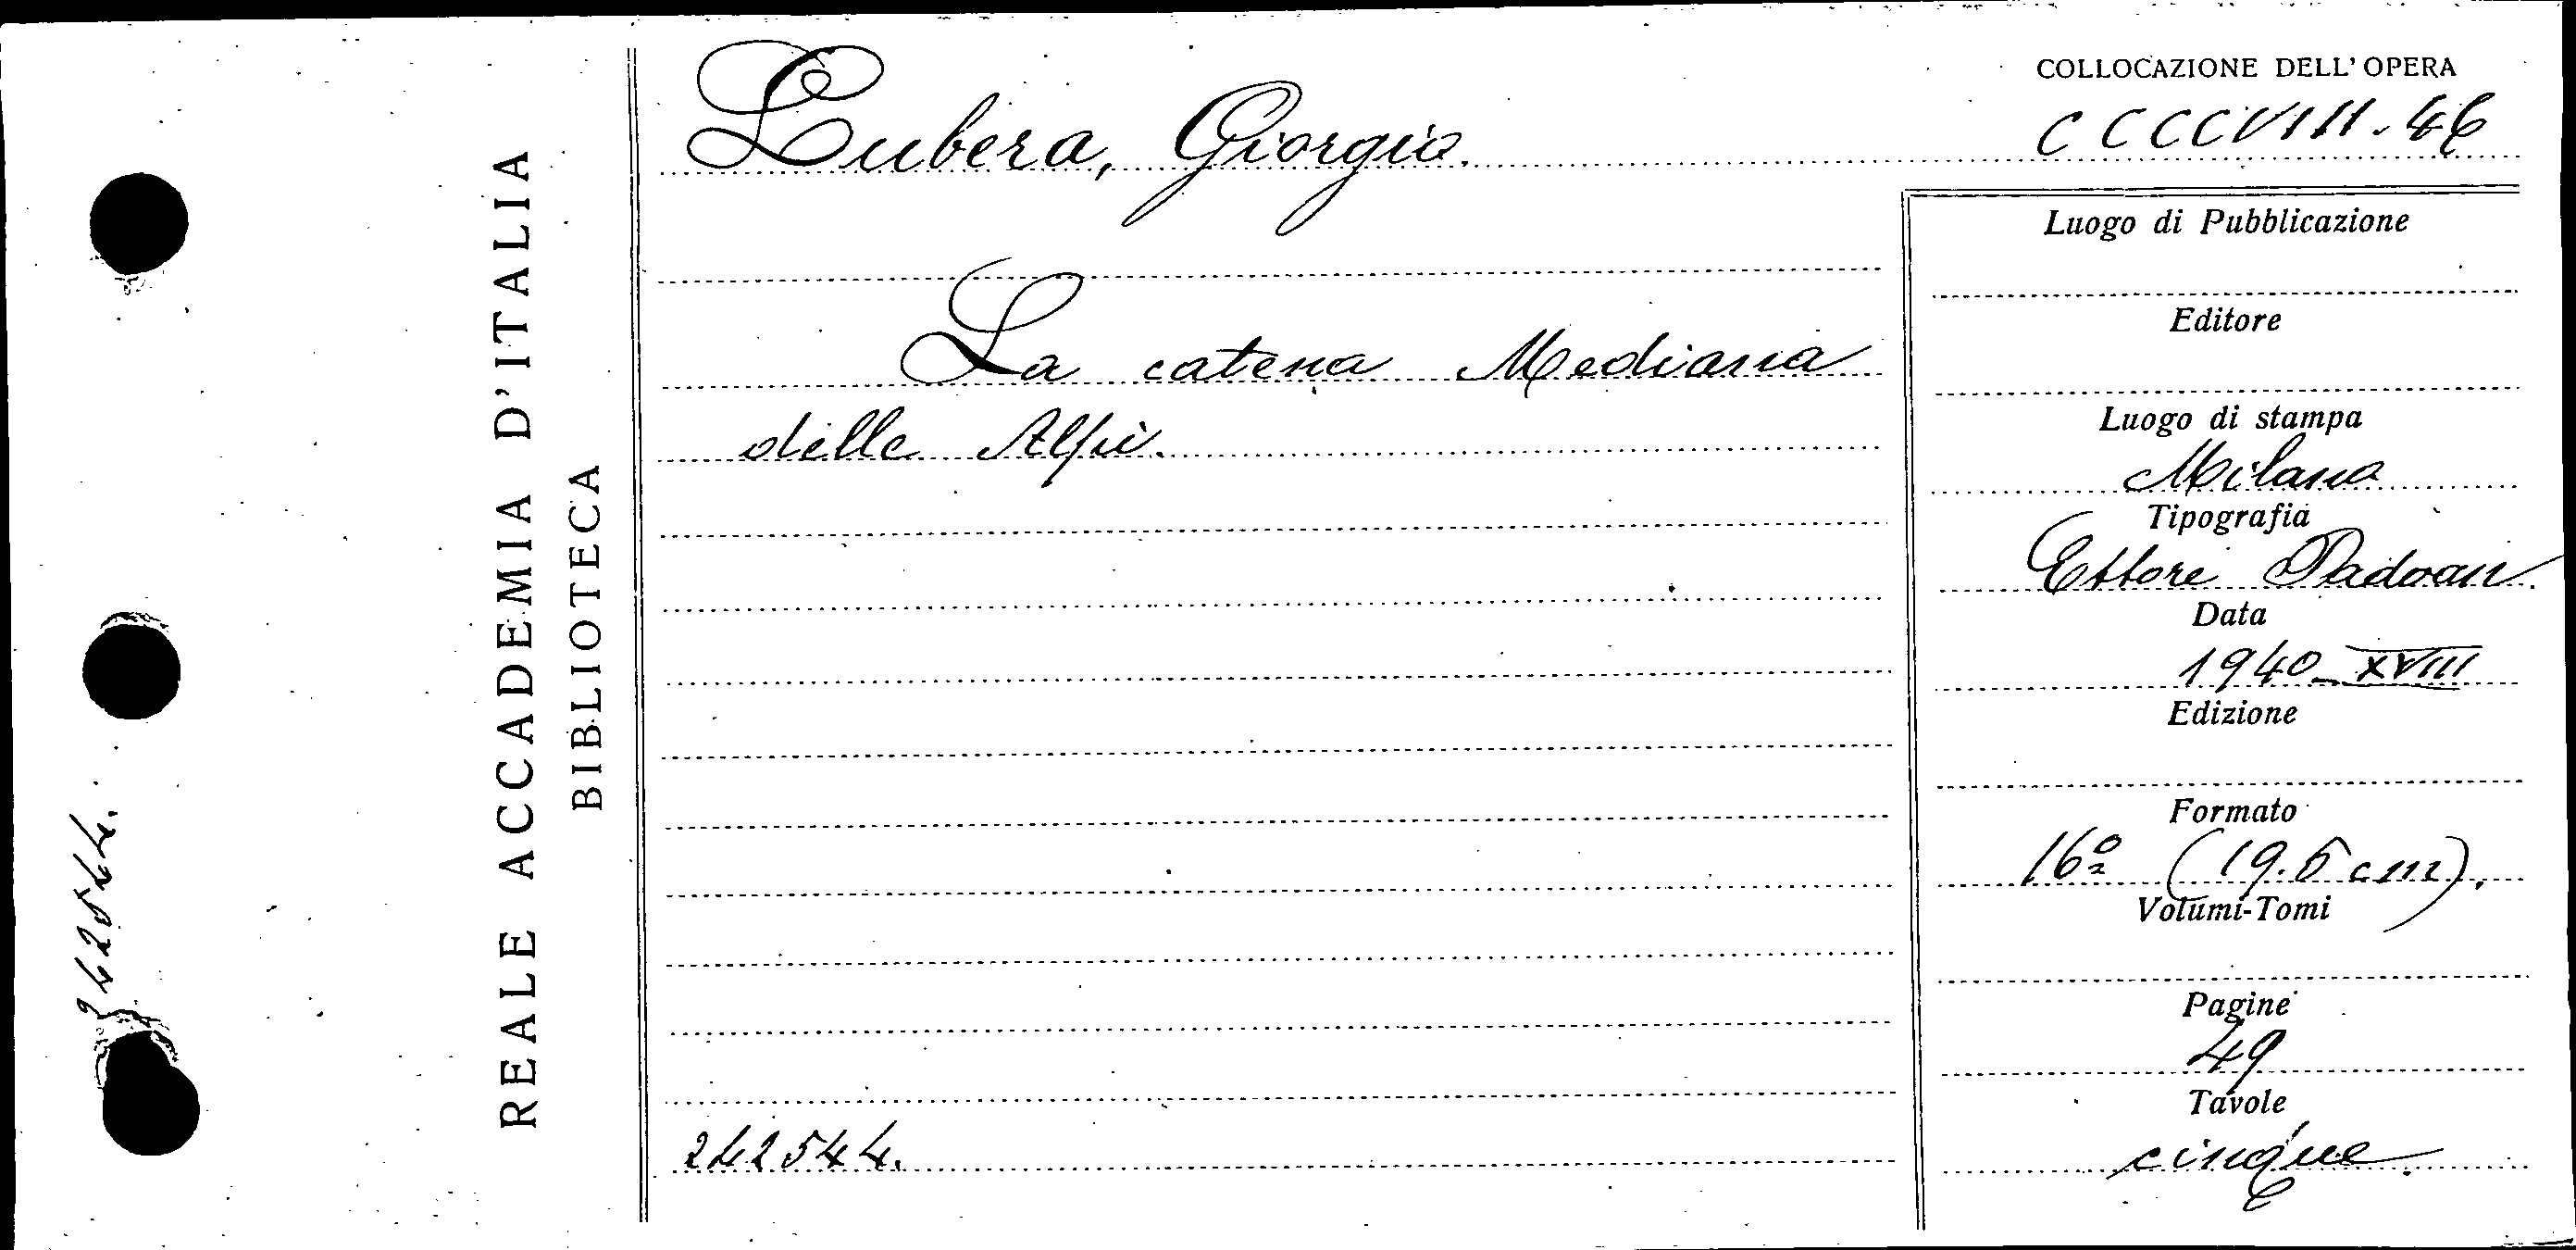 242544.
REALE ACCADEMIA D'ITALIA
BIBLIOTECA
Lubera, Giorgio.
La catena Mediana
delle Alpi.
242544.
COLLOCAZIONE DELL'OPERA
CCCCVIII.46
Luogo di Pubblicazione
Editore
Luogo di stampa
Milano
Tipografia
Ettore Padoan
Data
1940-XVIII
Edizione
Formato
16º (19.5 cm).
Volumi-Tomi
Pagine
49
Tavole
cinque.